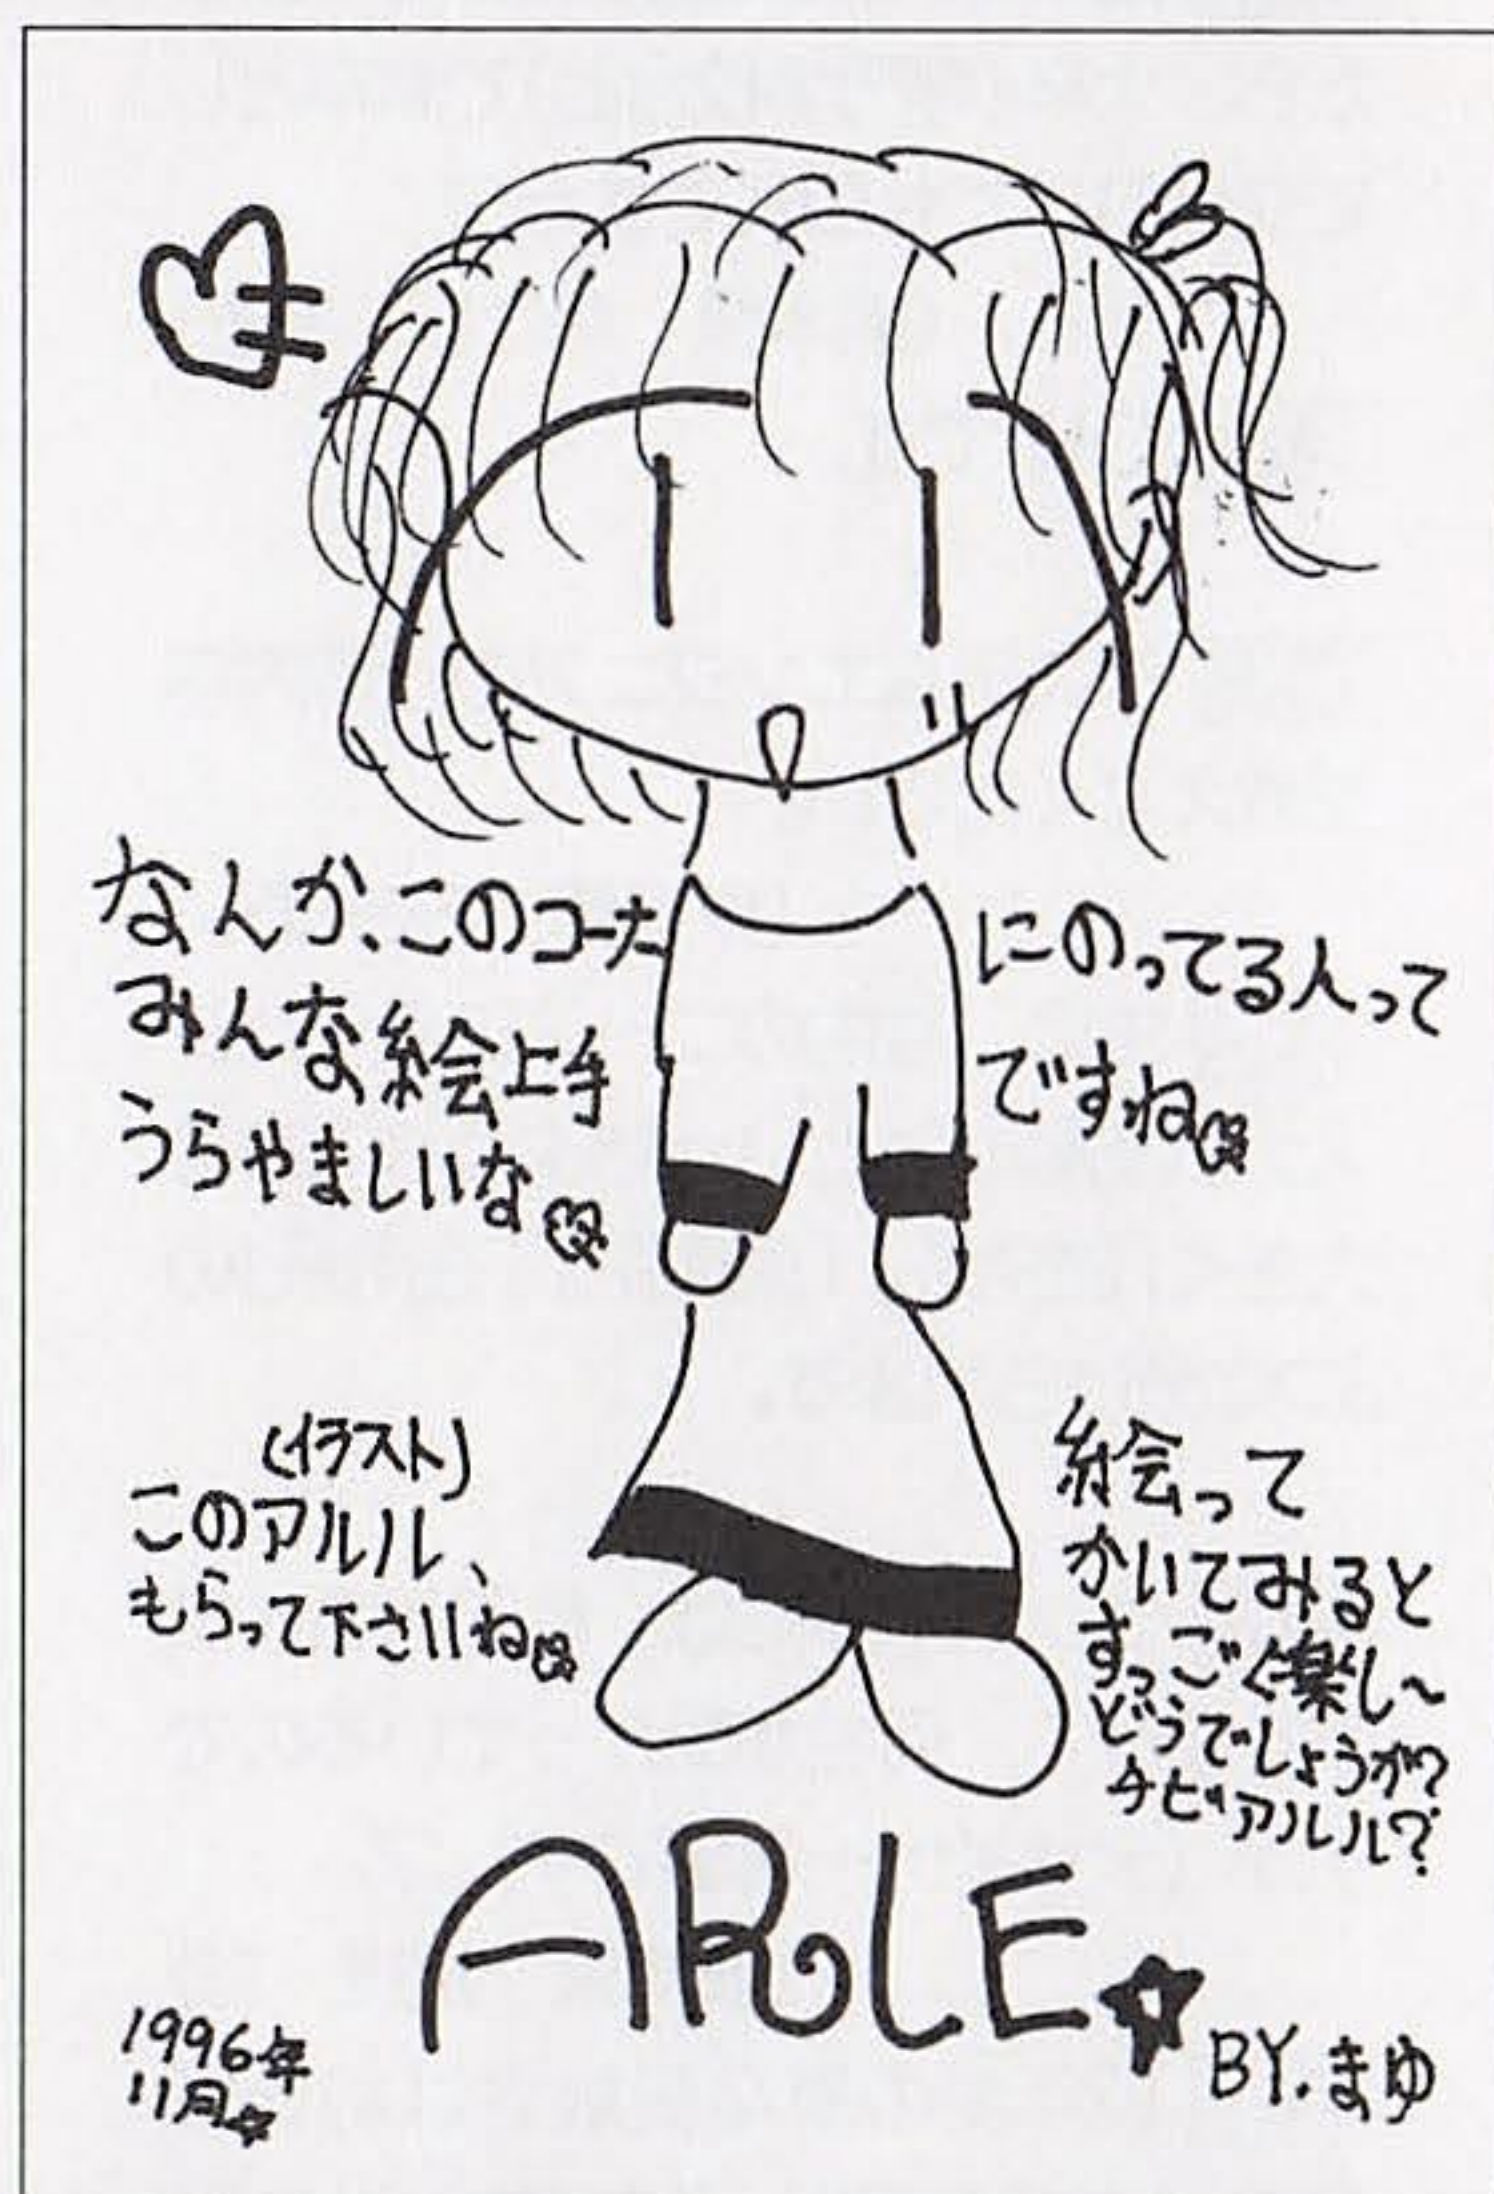 なんか、このコーナにのってる人って
みんな絵上手ですね
うらやましいな
(イラスト)
このアルル、
もらって下さいね
絵って
かいてみると
すっごく楽し～
どうでしょうか?
チビアルル?
ARLE
BY.まゆ
1996年
11月